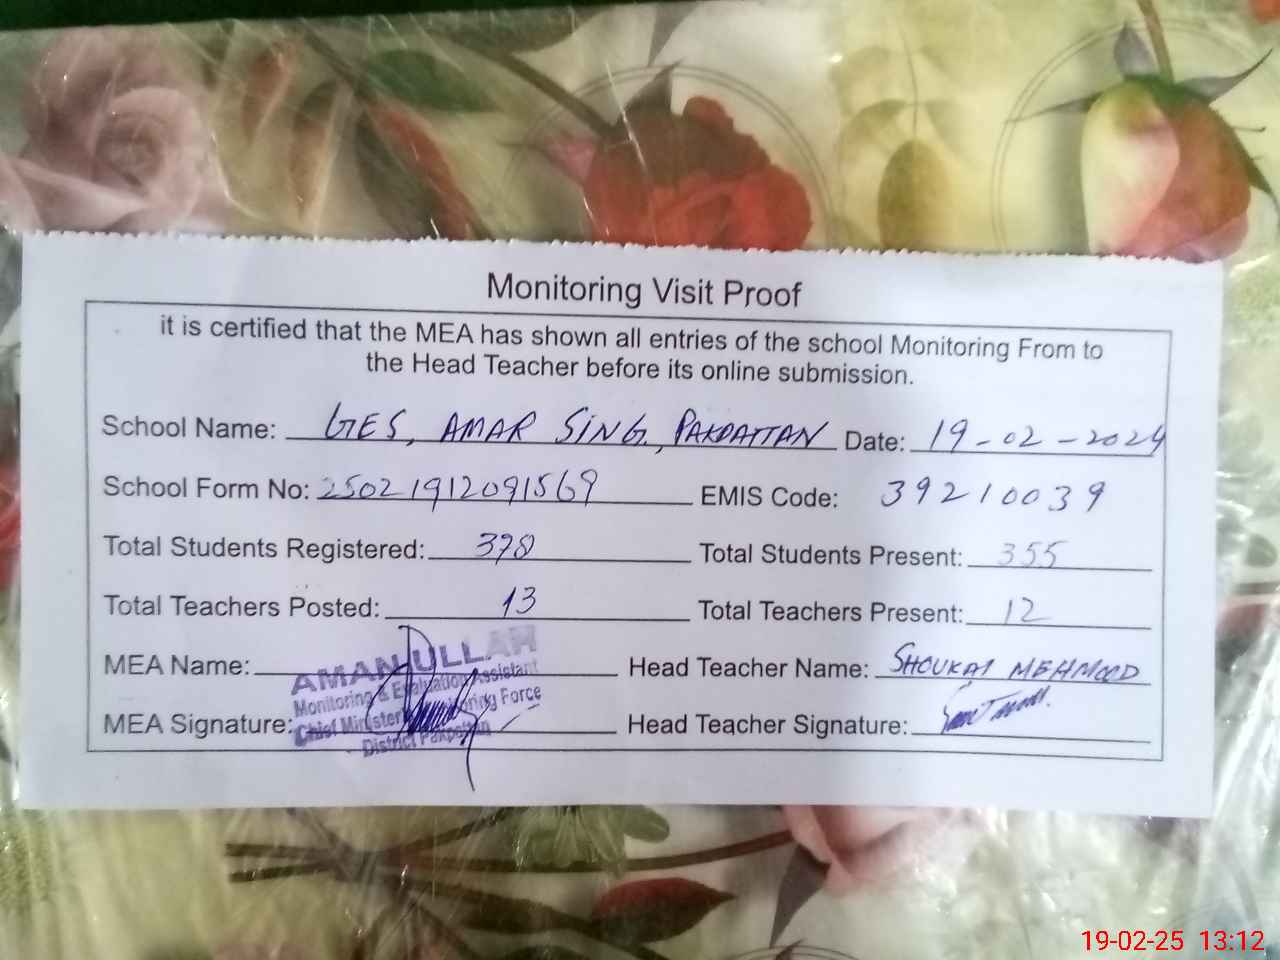 Monitoring Visit Proof
it is certified that the MEA has shown all entries of the school Monitoring From to
the Head Teacher before its online submission.
School Name: GES, AMAR SING, PAKPATTAN Date: 19-02-2024
School Form No: 25021912091569 EMIS Code: 39210039
Total Students Registered: 398 Total Students Present: 355
Total Teachers Posted: 13 Total Teachers Present: 12
MEA Name: AMAN ULLAH Head Teacher Name: SHOUKAT MEHMOOD
Monitoring & Evaluation Assistant
Chief Minister Monitoring Force
MEA Signature: Head Teacher Signature:
District Pakpattan
19-02-25 13:12